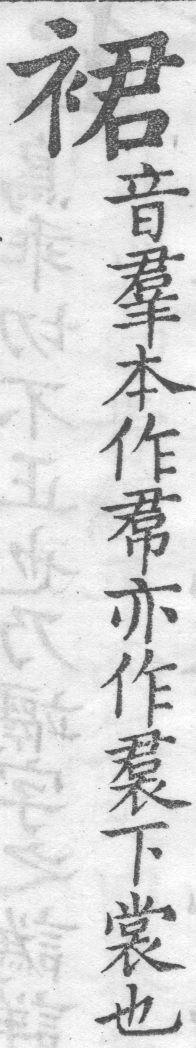 裙音羣本作帬亦作裠下裳也